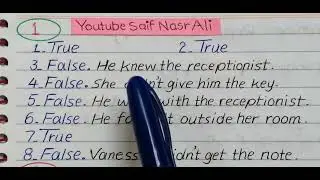 1 Youtube Saif Nasr Ali
1. True 2. True
3. False. He knew the receptionist.
4. False. She give him the key.
5. False. He with the receptionist.
6. False. He outside her room.
7. True
8. False. Vaness get the note.